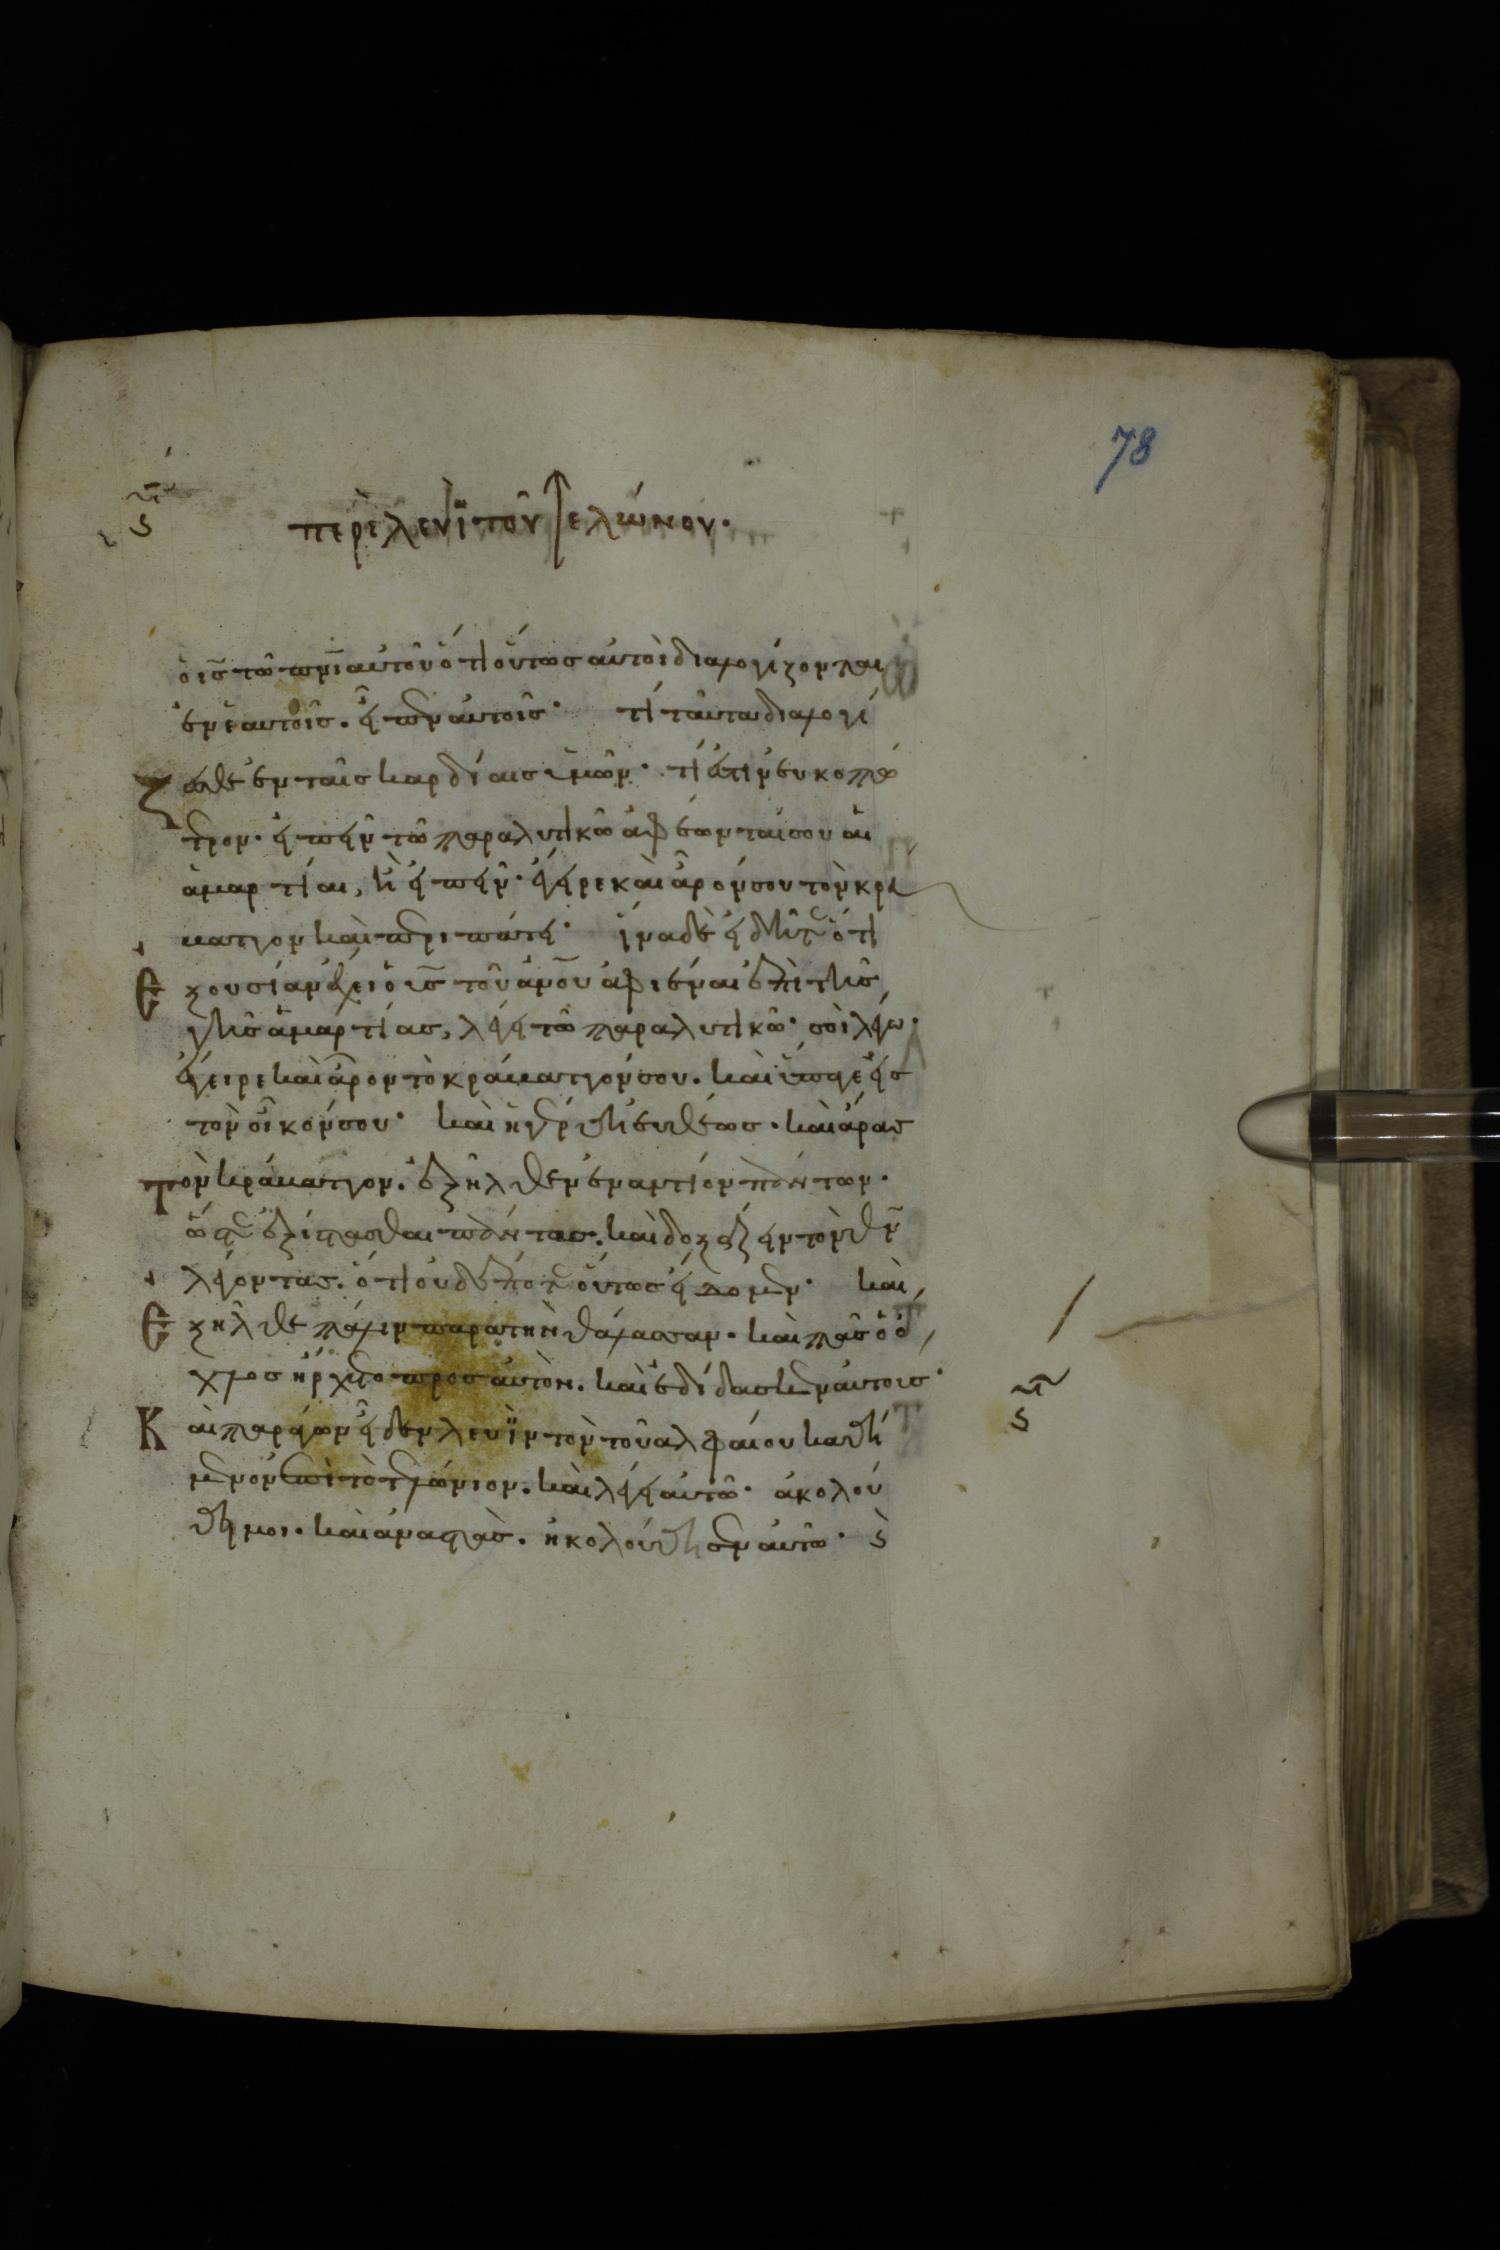 78
περὶ λευῒ τοῦ τελώνου·
ὁ ις τῶ πνι αὐτοῦ ὅτι οὕτως αὐτοὶ διαλογίζονται
ἐν ἑαυτοῖς. εἶπεν αὐτοῖς· τί ταῦτα διαλογί
ζεσθε ἐν ταῖς καρδίαις ὑμῶν· τί ἐστιν εὐκοπώ
τερον· εἰπεῖν τῶ παραλυτικῶ ἀφέωνταί σου αἱ
ἁμαρτίαι, ἢ εἰπεῖν· ἔγειρε καὶ ἆρόν σου τὸν κρα
ματτον καὶ περιπάτει· ἵνα δὲ εἰδῆτε ὅτι
ἐξουσίαν ἔχει ὁ υς τοῦ ανου ἀφιέναι ἐπὶ τῆς
γῆς ἁμαρτίας, λέγει τῶ παραλυτικῶ· σοὶ λέγω·
ἔγειρε καὶ ἆρον τὸ κράματτόν σου. καὶ ὕπαγε εἰς
τὸν οἶκόν σου· καὶ ἠγέρθη εὐθέως. καὶ ἄρας
τὸν κράματτον. ἐξῆλθεν ἐναντίον πάντων.
ὥστε ἐξίστασθαι πάντας. καὶ δοξάζειν τὸν θν
λέγοντας. ὅτι οὐδέποτε οὕτως εἴδομεν· καὶ
ἐξῆλθε πάλιν παρὰ τὴν θάλασσαν. καὶ πᾶς ὁ ὄ
χλος ἤρχετο πρὸς αὐτὸν. καὶ ἐδίδασκεν αὐτους·
Καὶ παράγων εἶδεν λευῒν τὸν τοῦ ἀλφαίου καθή
μενον ἐπὶ τὸ τελώνιον. καὶ λέγει αὐτῶ· ἀκολού
θει μοι. καὶ ἀναστὰς. ἠκολούθησεν αὐτῶ· ϛ